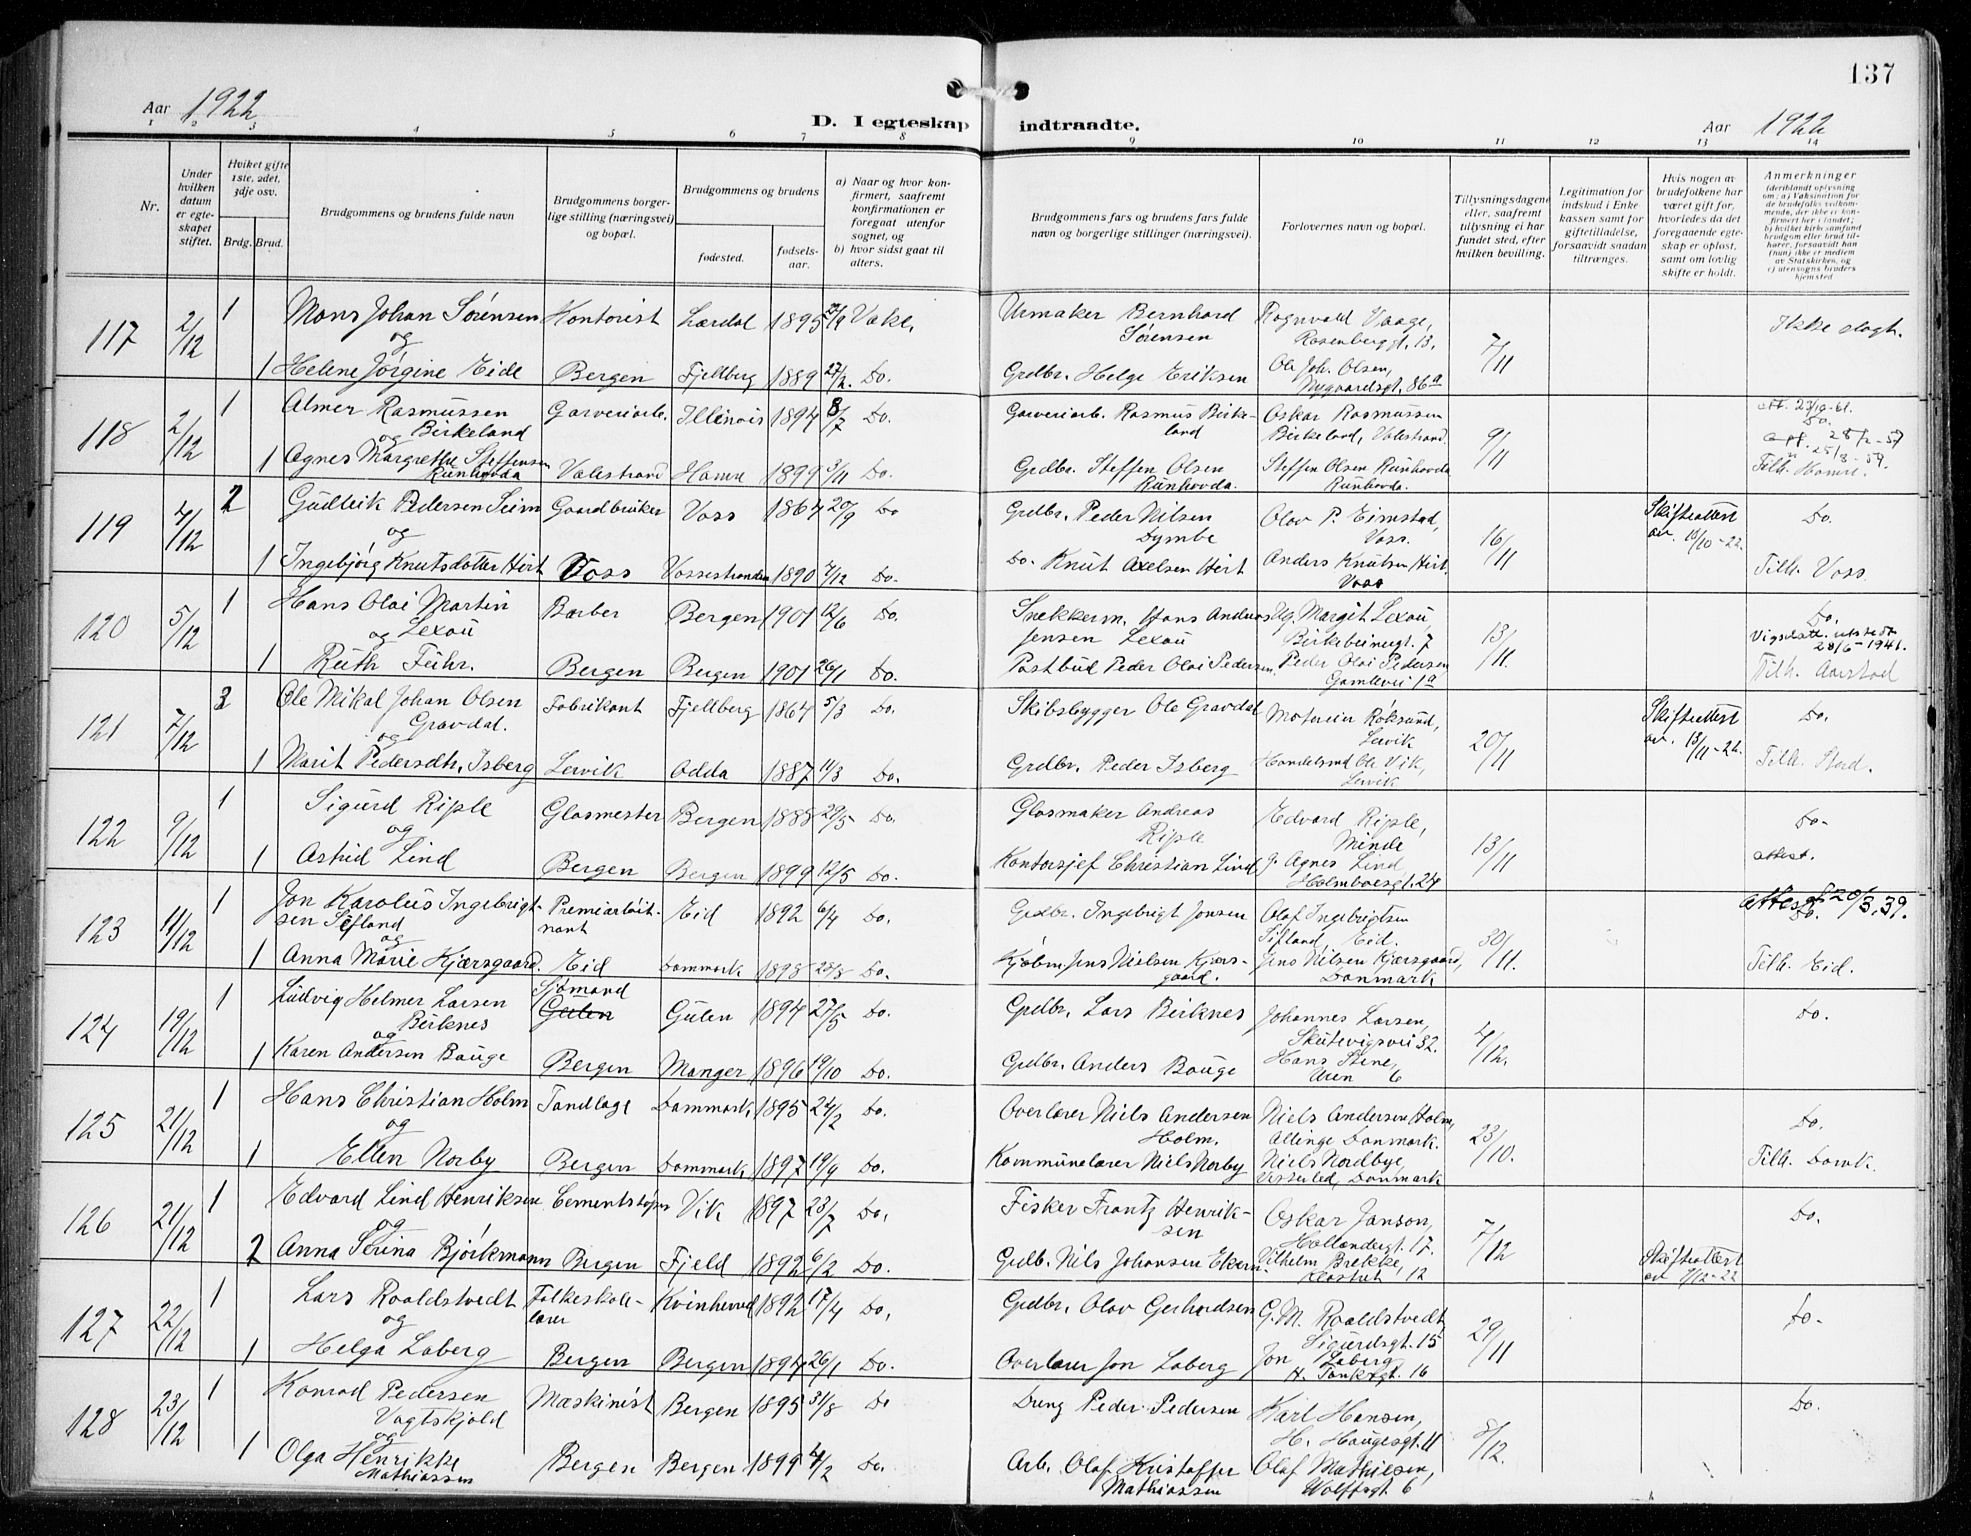 137
Aar 1922
D. I egteskap indtraadte.
Aar 1922
1 2 3 4 5 6 7 8 9 10 11 12 13 14
Nr.
Under hvilken datum er egteskapet stiftet.
Hviket gifte 1ste, 2det, 3dje osv.
Brdg. Brud.
Brudgommens og brudens fulde navn
Brudgommens borgerlige stilling (næringsvei) og bopæl.
Brudgommens og brudens
fødested.
fødselsaar.
a) Naar og hvor konfirmert, saafremt konfirmationen er foregaat utenfor sognet, og
b) hvor sidst gaat til alters.
Brudgommens fars og brudens fars fulde navn og borgerlige stillinger (næringsvei).
Forlovernes navn og bopæl.
Tillysningsdagene eller, saafremt tillysning ei har fundet sted, efter hvilken bevilling.
Legitimation for indskud i Enkekassen samt for giftetilladelse, forsaavidt saadan tiltrænges.
Hvis nogen av brudefolkene har været gift før, hvorledes da det foregaaende egteskap er opløst, samt om lovlig skifte er holdt.
Anmerkninger
117 2/12 1 Mons Johan Sørensen Kontorist Lærdal 1895 Vake. Urmaker Bernhard Sørensen Rognvald Vaage, Rosenberggt. 13. 7/11 Ikke slegt.
og
1 Helene Jørgine Eide Bergen Fjellberg 1889 27/2. Do. Grdbr. Helge Eriksen Ole Joh. Olsen, Nygaardsgt. 86a
118 2/12 1 Almer Rasmussen Birkeland Garveriarb. Illinois 1894 8/7 Do. Garveriarb. Rasmus Birkeland Oskar Rasmussen Birkeland, Valestrand. 9/11 Do.
og
1 Agnes Margrethe Steffensen Runhovda Valestrand Hamre 1899 3/11 Do. Grdbr. Steffen Olsen Runhovda. Steffen Olsen Runhovda Runhovda. Tilh. Hamre.
119 4/12 2 Gudleik Pedersen Seim Gaardbruker Voss 1864 20/9 Do Grdbr. Peder Nilsen Dymbe Olav P. Eimstad, Voss. 16/11 Skifteattest av. 10/10-22. Do.
og
1 Ingebjørg Knutsdotter Hirt Voss Vossestranden 1890 7/12 Do. Do. Knut Axelsen Hirt Anders Knutsen Hirt Voss Tilh. Voss
120 5/12 1 Hans Olai Martin Lexau Barber Bergen 1901 12/6 Do Snekkerm. Hans Andreas Jensen Lexau Ug. Margit Lexau, Birkebeinergt. 7 13/11. Do.
Vigselatt. utstedt 28/6-1941.
og
1 Ruth Føhr. Bergen Bergen 1901 26/1 Do. Postbud Peder Olai Pedersen. Peder Olai Pedersen, Gamlevei 1a Tilh. Aarstad
121 7/12 3 Ole Mikal Johan Olsen Gravdal. Fabrikant Fjellberg 1864 5/3 Do. Skibsbygger Ole Gravdal Røksund, Lervik 20/11 Skifteattest av. 13/11-22. Do.
og
1 Marit Pedersdtr. Isberg Lervik Odda 1887 11/3 Do. Grdbr. Peder Isberg Handelsmd Ole Vik, Lervik Tilh. Stord.
122 9/12 1 Sigurd Riple Glasmester Bergen 1888 29/5 Do. Glasmaker Andreas Riple Edvard Riple, Minde 13/11 Do-
og
1 Astrid Lind Bergen Bergen 1899 12/5 Do. Kontorsjef Christian Lind Agnes Lind Holmboesgt. 24 attest.
123 11/12 1 Jon Karolus Ingebrigtsen Sefland Premiarløitnant Eid 1892 6/4 Do. Grdbr. Ingebrigt Jonsen Olaf Ingebrigtsen Sifland, Eid. 30/11. attest 20/3.39. Do.
og
1 Anna Marie Kjærsgaard. Eid Danmark 1898 28/8 Do. Kjøbm Jens Nielsen Kjærsgaard. Jens Nilsen Kjærsgaard, Danmark Tilh. Eid.
124 19/12 1 Ludvig Helmer Larsen Birknes Sjømand Gulen Gulen 1894 27/5 Do. Grdbr. Lars Birknes Johannes Larsen, Skutevigsvei 32. 4/12. Do.
og
1 Karen Andersen Bauge Bergen Manger 1896 19/10 Do. Grdbr. Anders Bauge Hans Stene, Uren 6
125 21/12 1 Hans Christian Holm Tandlæge Danmark 1895 24/2 Do. Overlærer Niels Andersen Holm. Niels Andersen Holm, Allinge Danmark. 23/10. Do.
og
1 Ellen Norby Bergen Danmark 1897 19/9 Do. Kommunelærer Niels Norby Niels Nordbye, Danmark Tilh. Danmk.
126 21/12 1 Edvard Lind Henriksen Cementstøper Vik 1897 23/7 Do. Fisker Frantz Henriksen Oskar Janson, Hollendergt. 17. 7/12 Do.
og
2 Anna Serina Bjørkmann Bergen Fjeld 1892 6/2 Do. Grdb. Nils Johansen Ekern Vilhelm Brekke, Klostret 12 Skifteattest av 7/12-22
127 22/12 1 Lars Roaldstvedt Folkeskolelærer Kvinherred 1892 17/4 Do. Grdbr. Olav Gerhardsen G. M. Roaldstvedt, Sigurdsgt. 15 29/11 Do-
og
1 Helga Loberg Bergen Bergen 1894 26/1 Do. Overlærer Jon Loberg Jon Loberg H. Tanksgt. 16
128 23/12 1 Konrad Pedersen Vogtskjold Maskinist Bergen 1895 31/8 Do Peder Pedersen Karl Hansen, H. Haugesgt. 11 8/12. Do.
og
1 Olga Henrikke Mathiassen Bergen Bergen 1899 4/2 Do. Arb. Olaf Kristoffer Mathiassen Olaf Mathiesen, Wolffsgt. 6